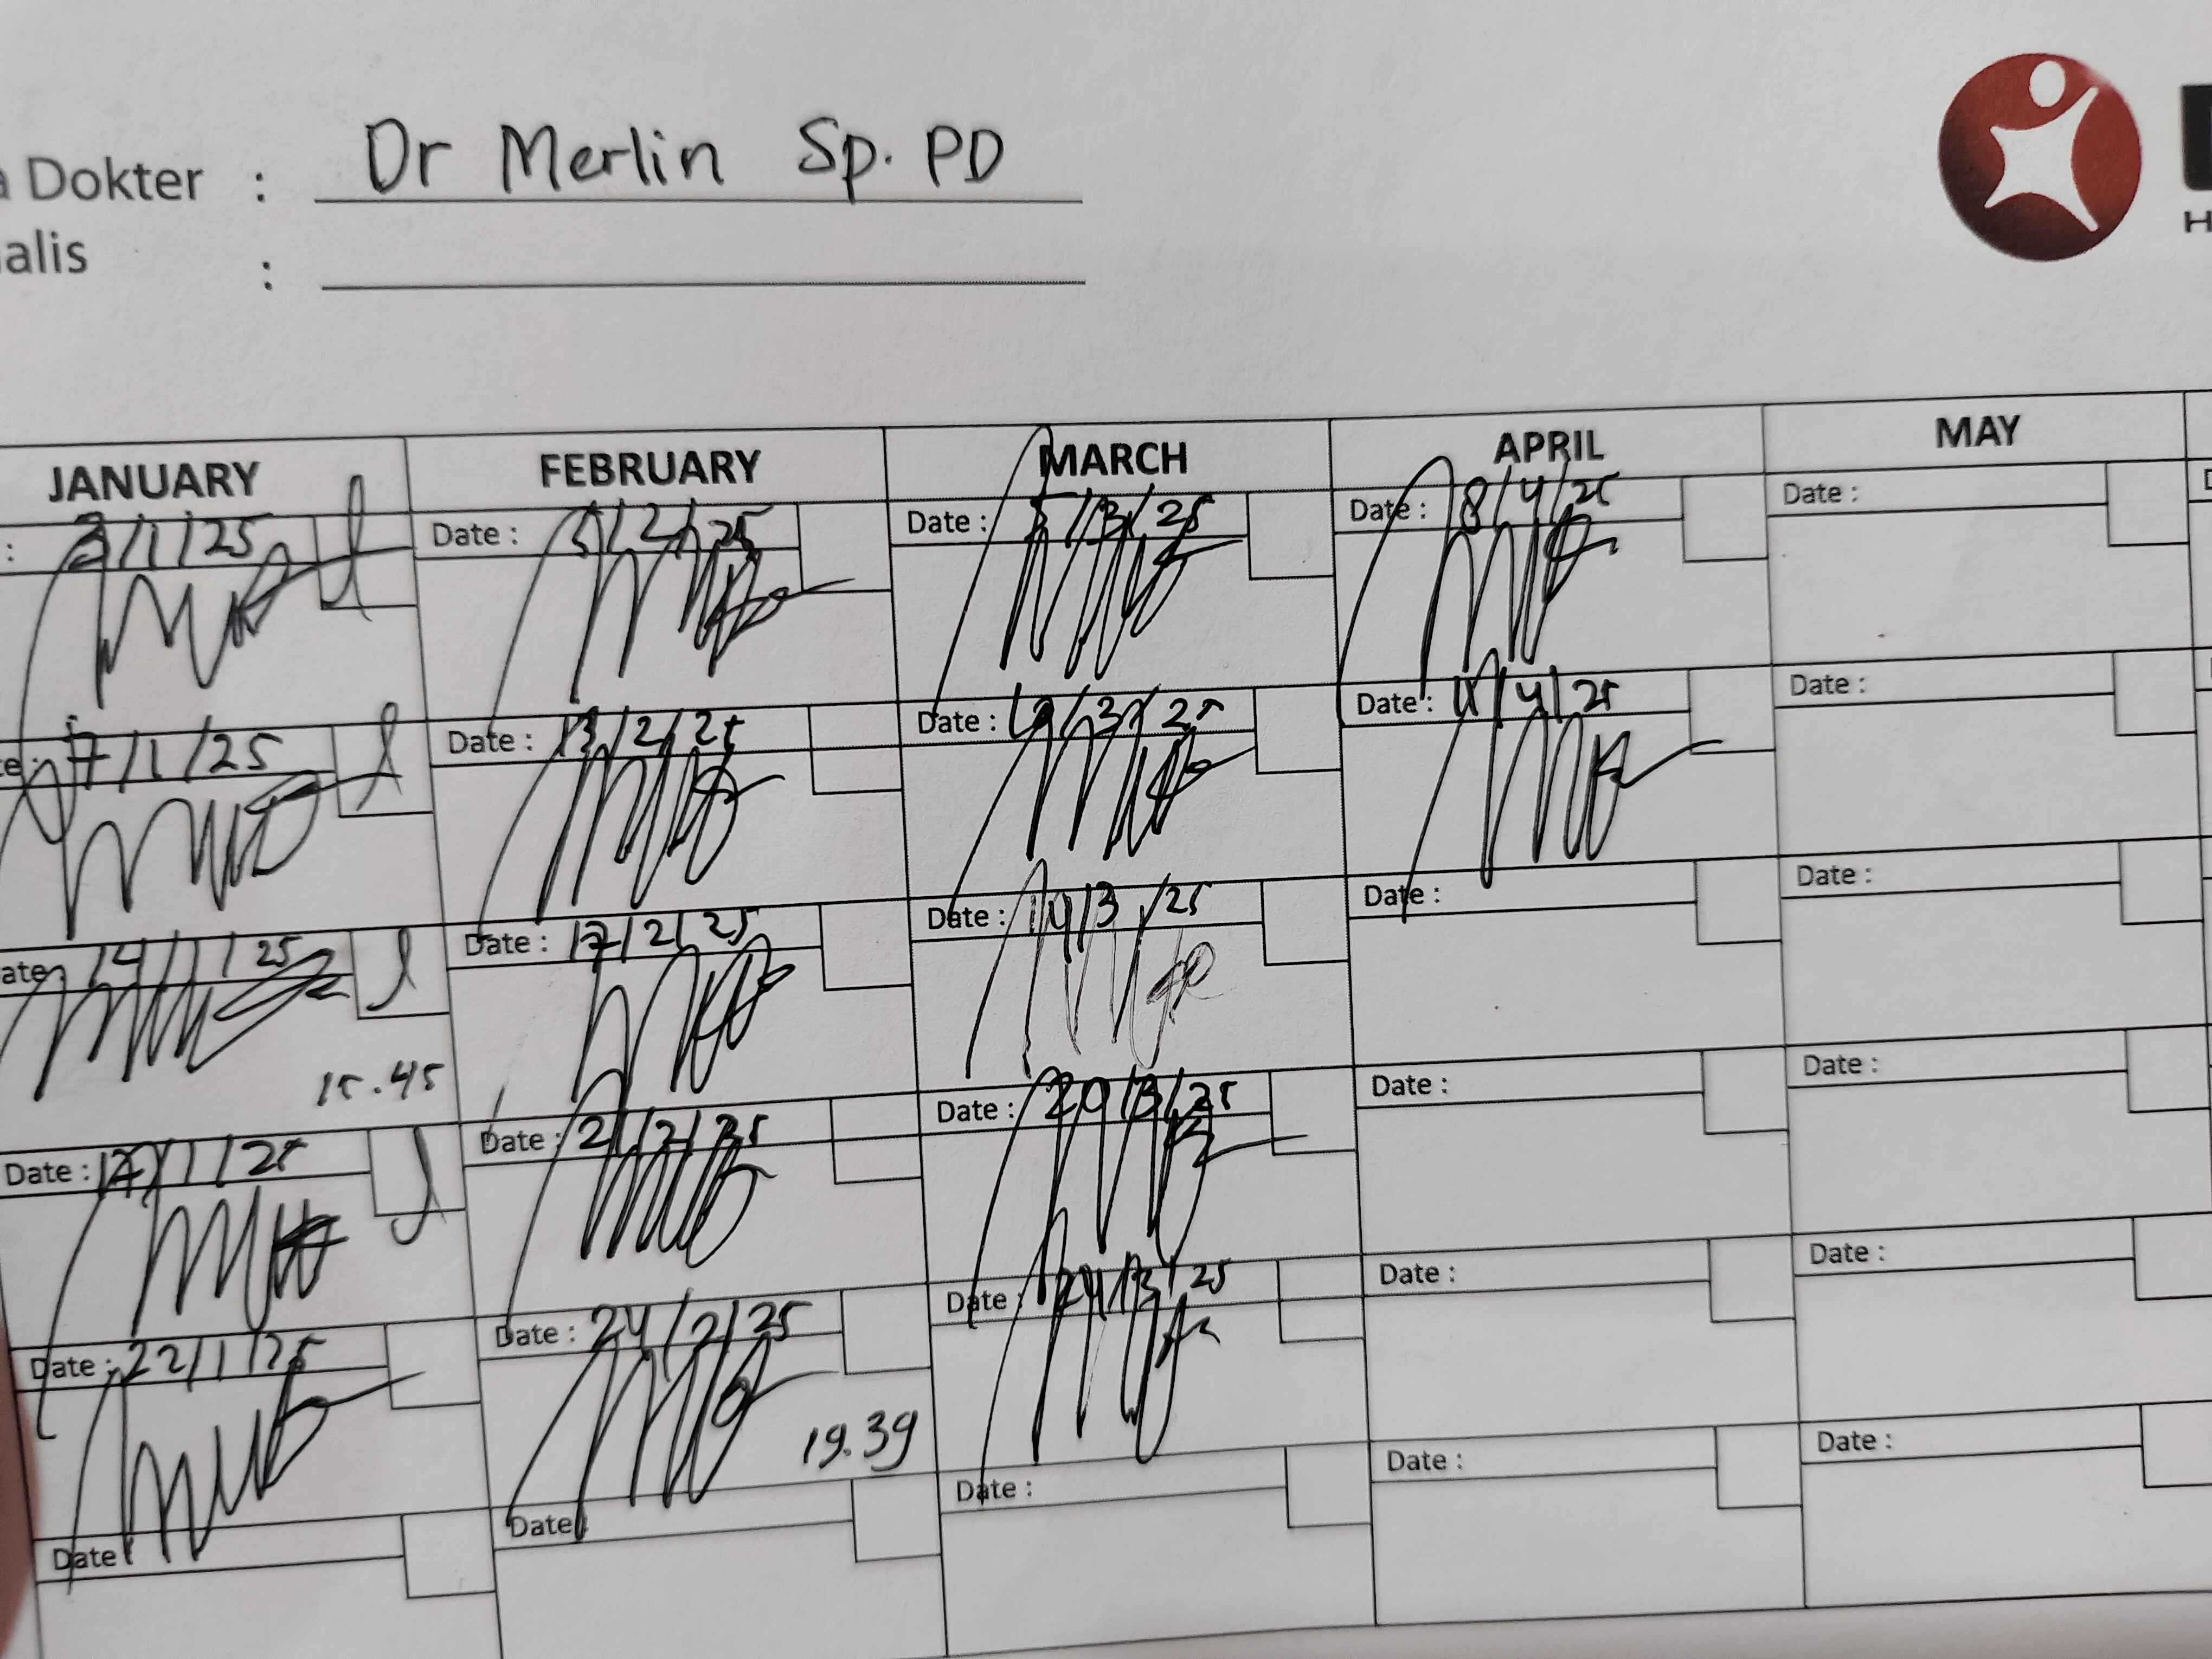 a Dokter : Dr Merlin Sp. PD
alis :
JANUARY FEBRUARY MARCH APRIL MAY
: 3/1/25 Date : 5/2/25 Date : 5/3/25 Date : 8/4/25 Date :
7/1/25 Date : 13/2/25 Date : Date : 11/4/25 Date :
ate 14/1/25 Date : 17/2/25 Date : 14/3/25 Date : Date :
15.45
Date : 17/1/25 Date : 21/2/25 Date : 20/3/25 Date : Date :
Date : 22/1/25 Date : 24/2/25 Date : 24/3/25 Date : Date :
19.39
Date Date Date : Date : Date :